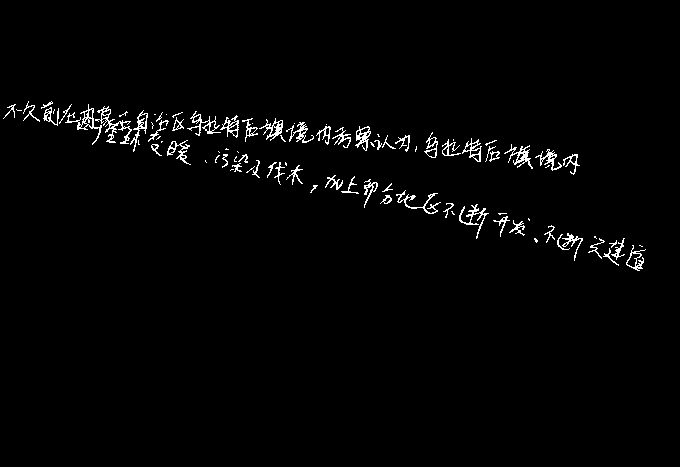 不久前在内蒙古自治区乌拉特后旗境内秀界认为,乌拉特后旗境内
全球变暖、污染及伐木,加上部分地区不断开发、不断兴建道